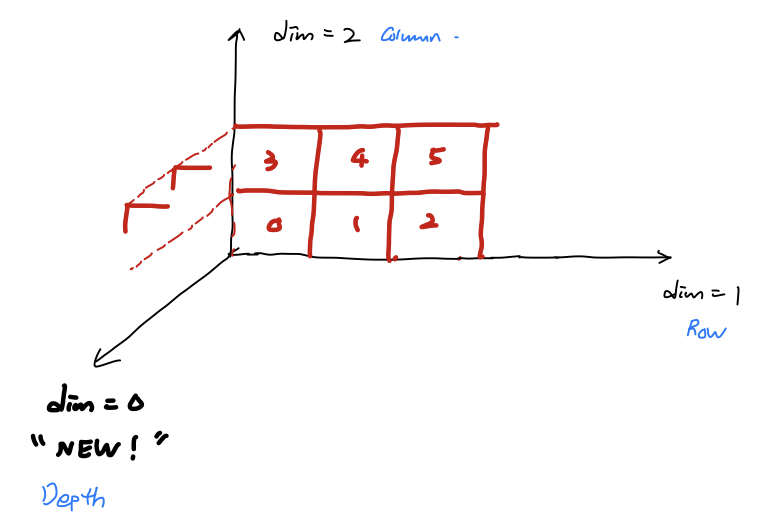 dim = 2 Column -
3 4 5
0 1 2
dim = 1
Row
dim = 0
"NEW!"
Depth